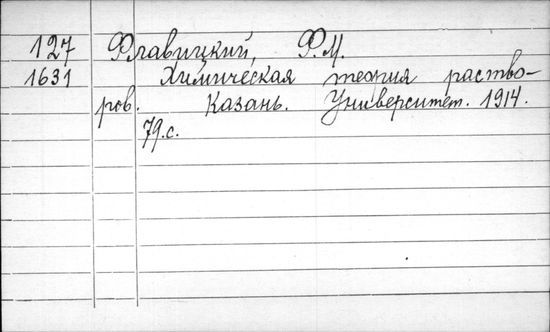 127 Флавицкий, Ф.М.
1631 Химическая теория раство-
ров. Казань. Университет. 1914.
79 с.